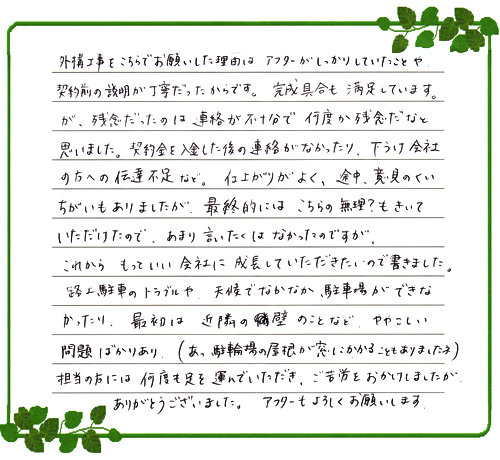 外構工事をこちらでお願いした理由は アフターがしっかりしていたことや、
契約前の説明が丁寧だったからです。 完成具合も 満足しています。
が、残念だったのは 連絡が不十分で 何度か残念だなと
思いました。契約金を入金した後の連絡がなかったり、下うけ会社
の方への伝達不足など。 仕上がりがよく、途中、意見のくい
ちがいもありましたが、最終的には こちらの無理?もきいて
いただけたので、あまり言いたくは なかったのですが、
これから もっといい会社に 成長していただきたいので書きました。
路上駐車のトラブルや、天候でなかなか駐車場ができな
かったり、 最初は 近隣の 壁 のことなど、ややこしい
問題ばかりあり、(あっ、駐輪場の屋根が窓にかかることもありましたネ)
担当の方には 何度も足を運んでいただき、ご苦労をおかけしましたが、
ありがとうございました。 アフターもよろしくお願いします。